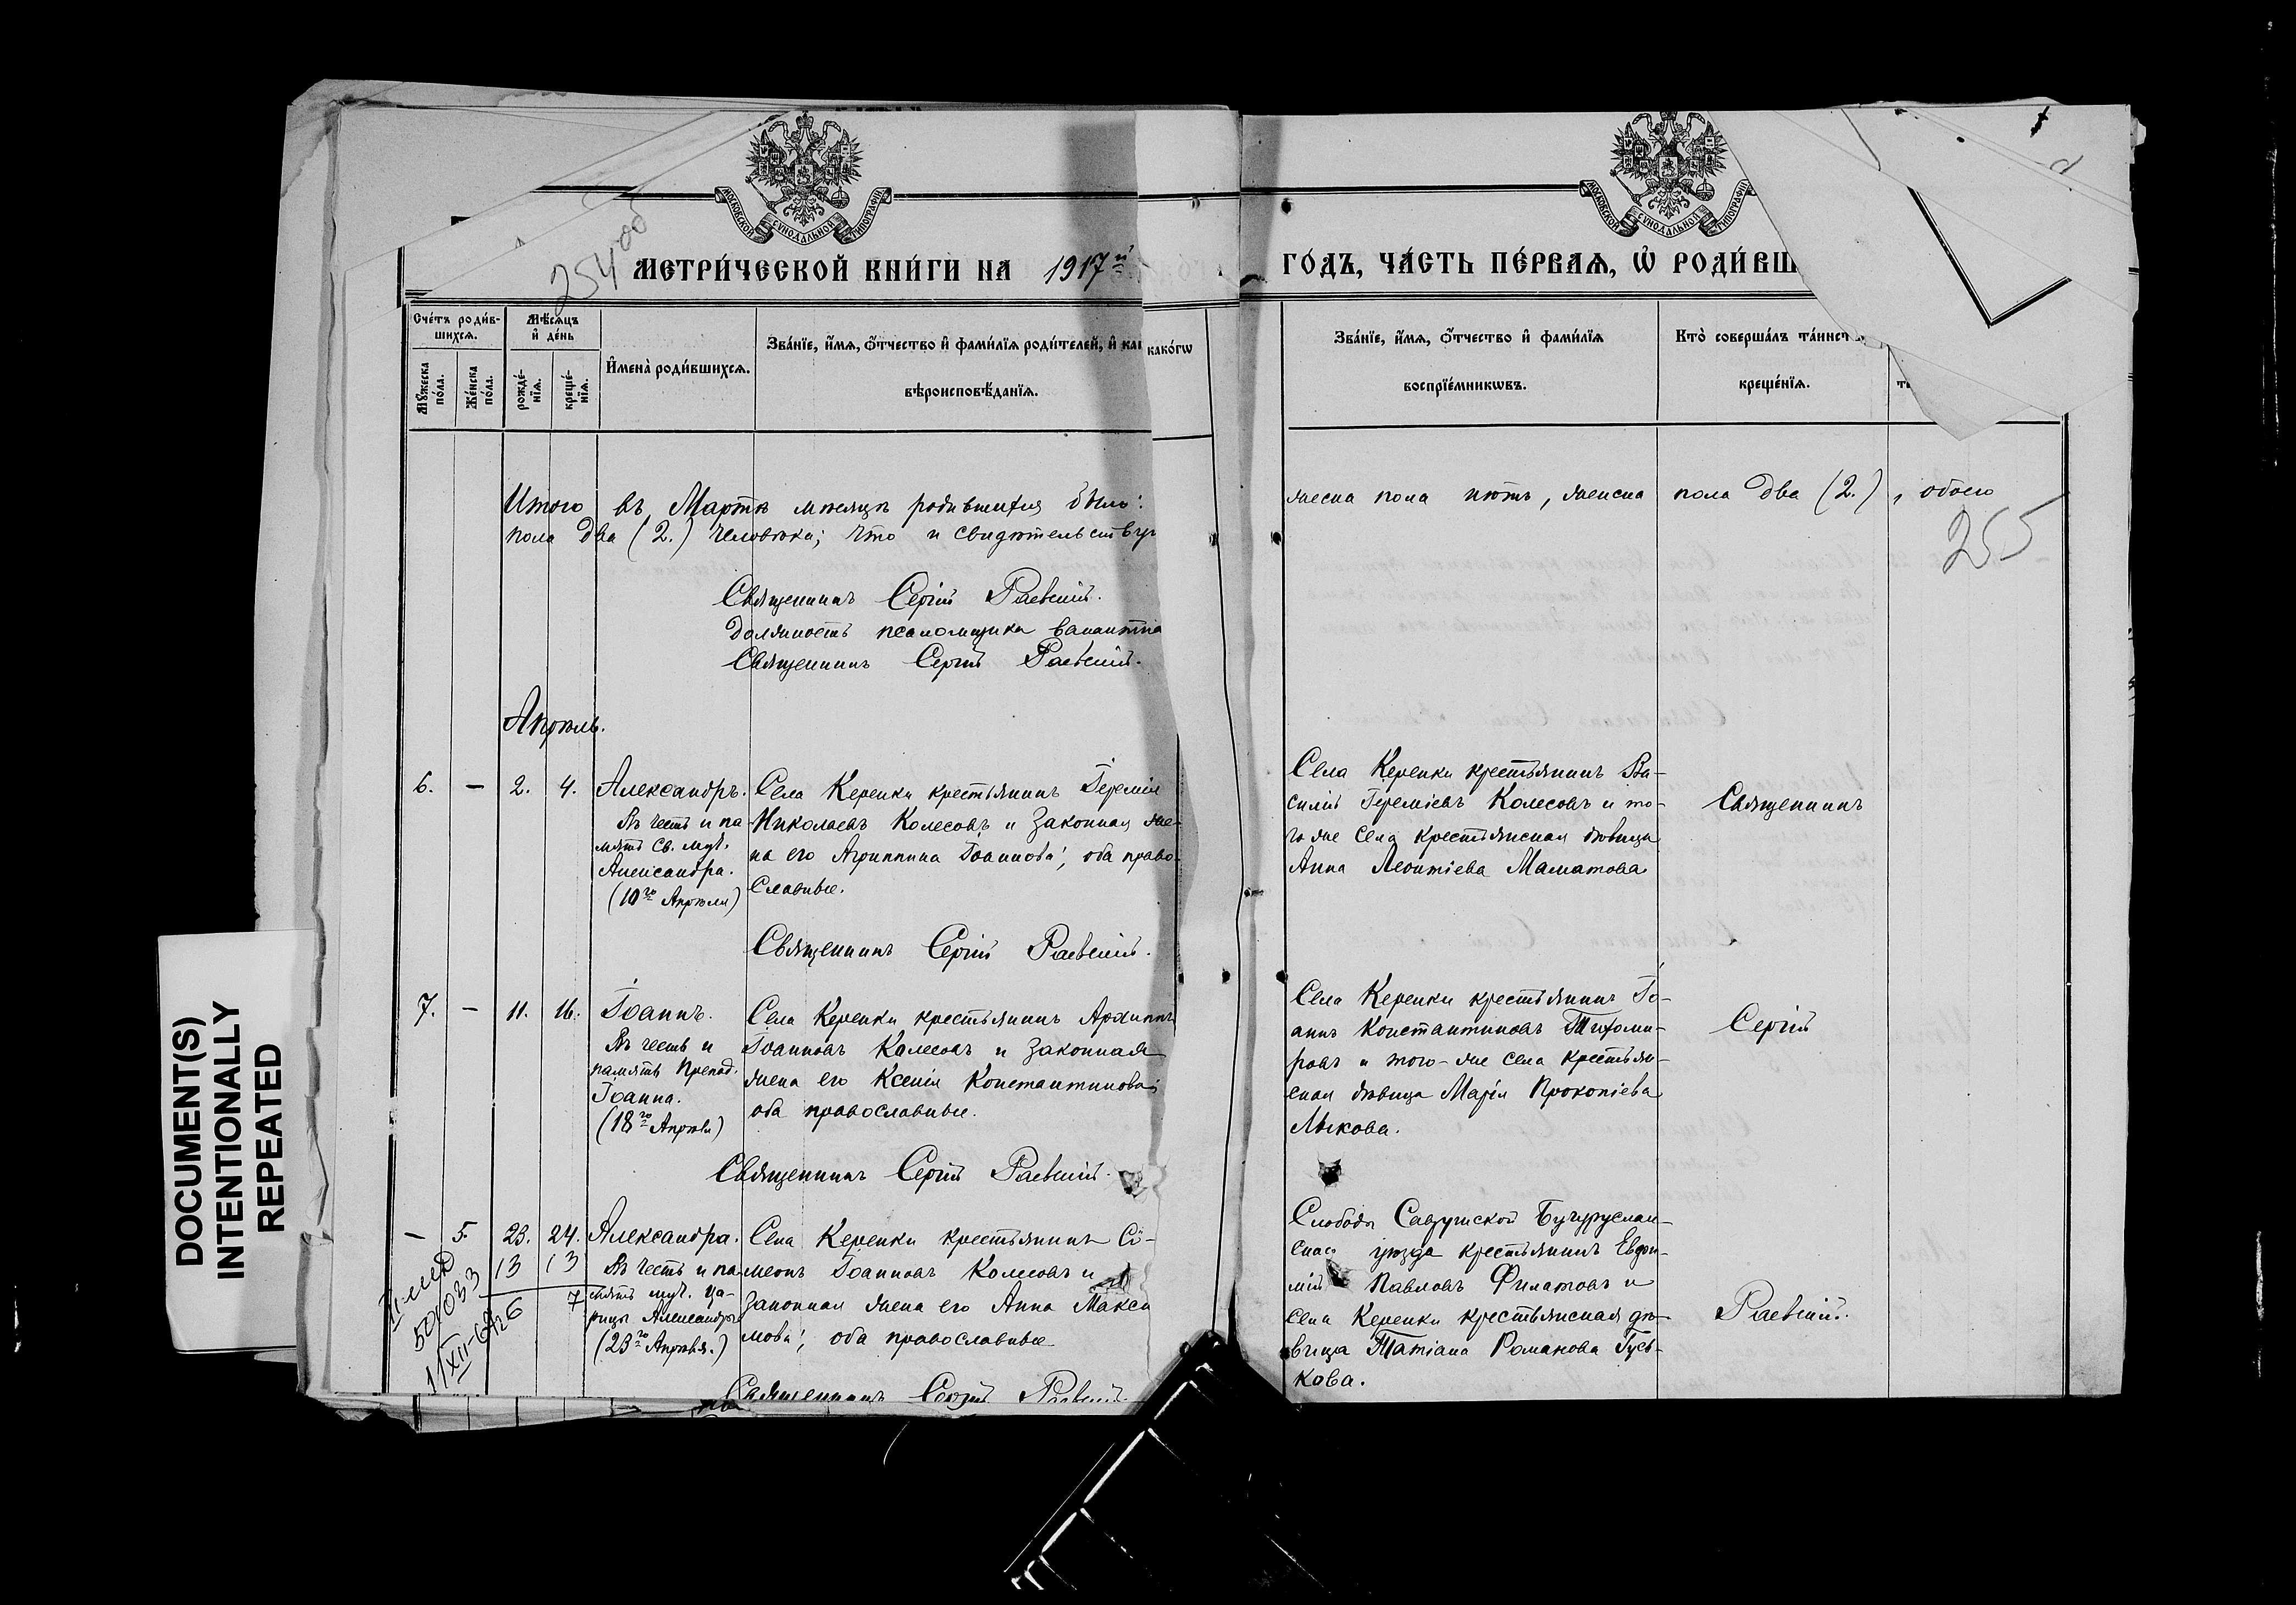 МОСКОВСКОЙ СУНОДАЛЬНОЙ ТИПОГРАФІИ
МОСКОВСКОЙ СУНОДАЛЬНОЙ ТИПОГРАФІИ
254 об
МЕТРИ́ЧЕСКОЙ КНИ́ГИ НА 1917й
ГО́ДЪ, ЧА́СТЬ ПЕ́РВАѦ, Ѡ҆ РОДИ́ВШ
Сче́тъ роди́в-
шихсѧ.
Мѣ́сѧцъ
и҆ де́нь
Мꙋ́жеска
по́ла.
Же́нска
по́ла.
рожде́-
нїѧ.
креще́-
нїѧ.
И҆мена̀ роди́вшихсѧ.
Зва́нїе, и҆́мѧ, ѻ҆́тчество и҆ фами́лїѧ роди́телей, и҆ как како́гѡ
вѣроисповѣ́данїѧ.
Зва́нїе, и҆́мѧ, ѻ҆́тчество и҆ фами́лїѧ
воспрїе́мникѡвъ.
Кто̀ соверша́лъ та́инст
креще́нїѧ.
Итого въ Мартѣ мѣсяцѣ родившихся было:
пола два (2.) человѣка; что и свидѣтельству
Священникъ Сергій Раевскій.
Должность псаломщика вакантна
Священникъ Сергій Раевскій.
жеска пола нѣтъ, женска пола два (2.), обоего
255
Апрѣль.
6. — 2. 4. Александръ.
Въ честь и па-
мять св. муч.
Александра.
(10го Апрѣля)
Села Керенки крестьянинъ Іеремія
Николаевъ Колесовъ и законная же-
на его Агриппина Іоаннова, оба право-
славные.
Священникъ Сергій Раевскій.
Села Керенки крестьянинъ Ва-
силій Іереміевъ Колесовъ и то-
го же села крестьянская дѣвица
Анна Леонтіева Маматова
Священникъ
7. — 11. 16. Іоаннъ.
Въ честь и
память Препод.
Іоанна.
(18го Апрѣля)
Села Керенки крестьянинъ Архиппъ
Іоанновъ Колесовъ и законная
жена его Ксенія Константинова,
оба православные.
Священникъ Сергій Раевскій.
Села Керенки крестьянинъ Іо-
аннъ Константиновъ Тихоми-
ровъ и того-же села крестьян-
ская дѣвица Марія Прокопіева
Лыкова.
Сергій
— 5. 23. 24. Александра.
13 13
7
Въ честь и па-
мять муч. ца-
рицы Александры
(23го Апрѣля.)
Села Керенки крестьянинъ Сѵ-
меонъ Іоанновъ Колесовъ и
законная жена его Анна Макси
мова, оба православные
Священникъ Сергій Раевскій.
501033
Слободы Саврушской Бугуруслан-
скаго уѣзда крестьянинъ Евдоки-
мій Павловъ Филатовъ и
села Керенки крестьянская дѣ-
вица Татіана Романова Гусь-
кова.
Раевскій.
DOCUMENT(S)
INTENTIONALLY
REPEATED